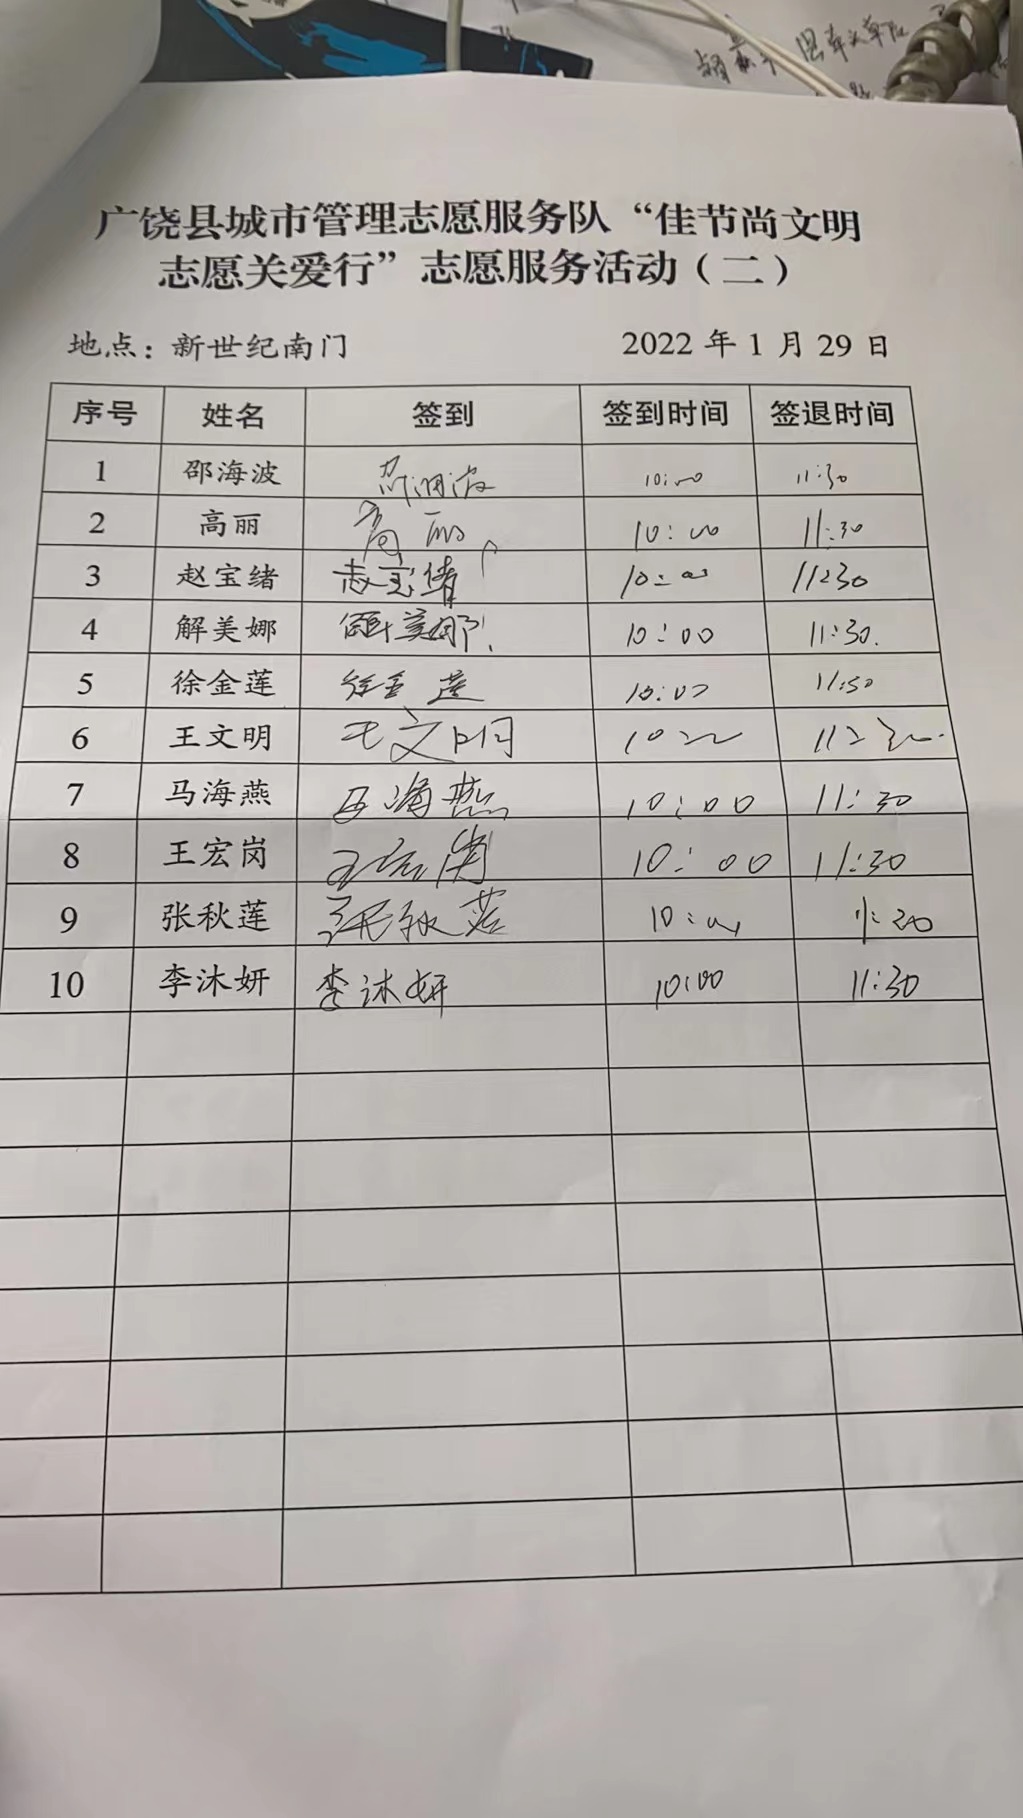 广饶县城市管理志愿服务队“佳节尚文明
志愿关爱行”志愿服务活动（二）
地点：新世纪南门 2022 年 1 月 29 日
序号 姓名 签到 签到时间 签退时间
1 邵海波 邵海波 10:00 11:30
2 高丽 高丽 10:00 11:30
3 赵宝绪 赵宝绪 10:00 11:30
4 解美娜 解美娜 10:00 11:30.
5 徐金莲 徐金莲 10:00 11:30
6 王文明 王文明 10:00 11:30
7 马海燕 马海燕 10:00 11:30
8 王宏岗 王宏岗 10:00 11:30
9 张秋莲 张秋莲 10:00 11:30
10 李沐妍 李沐妍 10:00 11:30